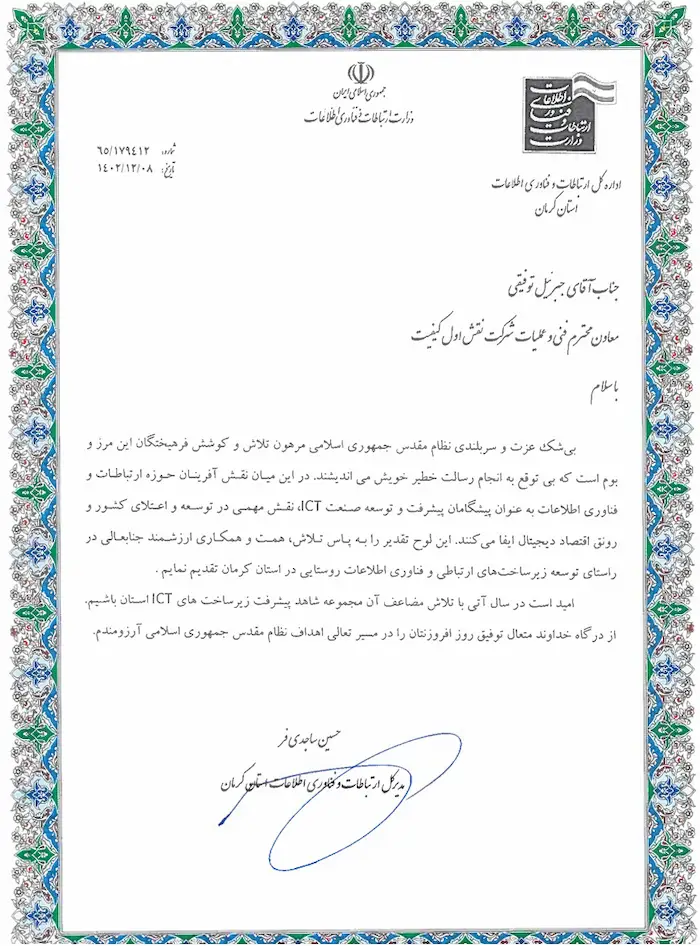 جمهوری اسلامی ایران
وزارت ارتباطات و فناوری اطلاعات
وزارت ارتباطات و فناوری اطلاعات
شماره: ۶۵/۱۷۹۴۱۲
تاریخ: ۱۴۰۲/۱۲/۰۸
اداره کل ارتباطات و فناوری اطلاعات
استان کرمان
جناب آقای جبرئیل توفیقی
معاون محترم فنی و عملیات شرکت نقش اول کیفیت
با سلام
بی‌شک عزت و سربلندی نظام مقدس جمهوری اسلامی مرهون تلاش و کوشش فرهیختگان این مرز و
بوم است که بی توقع به انجام رسالت خطیر خویش می اندیشند. در این میان نقش آفرینان حوزه ارتباطات و
فناوری اطلاعات به عنوان پیشگامان پیشرفت و توسعه صنعت ICT، نقش مهمی در توسعه و اعتلای کشور و
رونق اقتصاد دیجیتال ایفا می‌کنند. این لوح تقدیر را به پاس تلاش، همت و همکاری ارزشمند جنابعالی در
راستای توسعه زیرساخت‌های ارتباطی و فناوری اطلاعات روستایی در استان کرمان تقدیم نمایم .
امید است در سال آتی با تلاش مضاعف آن مجموعه شاهد پیشرفت زیرساخت های ICT استان باشیم.
از درگاه خداوند متعال توفیق روز افروزنتان را در مسیر تعالی اهداف نظام مقدس جمهوری اسلامی آرزومندم.
حسین ساجدی فر
مدیرکل ارتباطات و فناوری اطلاعات استان کرمان